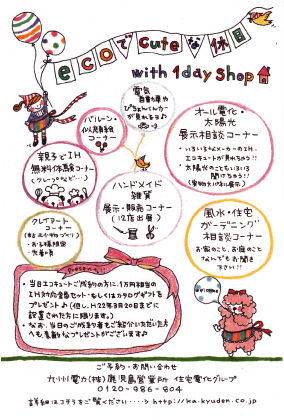 ecoでcuteな休日
with 1day shop
電気
自動車や
が見れるよ♪
バルーン・
似顔絵
コーナー
オール電化・
太陽光
展示相談コーナー
・いろいろなメーカーのIH、
エコキュートが見れちゃう!!
太陽光のこともいろいろ
聞けちゃう!!
親子でIH
無料体験コーナー
ハンドメイド
雑貨
展示・販売コーナー
(12店出番)
クレイアート
コーナー
・お子様限定
・先着順
風水・住宅
ガーデニング
相談コーナー
お家のこと、お庭のこと
なんでもお聞き
下さい!!
welcome
Present
・当日エコキュートご成約の方に、1万円相当の
IH対応金器セット・もしくはカタログギフトを
プレゼント♪(但し、H22年3月20日までに
設置された方に限ります。)
・なお、当日のご成約者をご紹介いただいた方
へも、素敵なプレゼントがございます♪
ご予約・お問い合わせ
九州電力(株)鹿児島営業所 住宅電化グループ
0120-986-804
詳細はコチラをご覧ください・・・・> http://ka.kyuden.co.jp